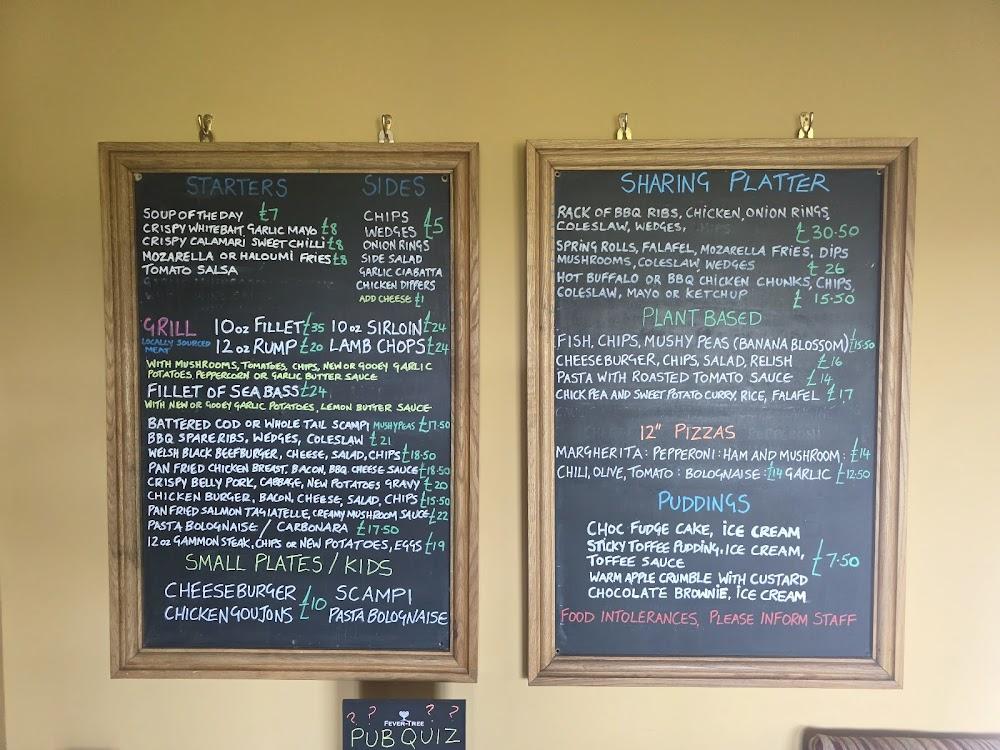 STARTERS
SOUP OF THE DAY £7
CRISPY WHITEBAIT, GARLIC MAYO £8
CRISPY CALAMARI SWEET CHILLI £8
MOZARELLA OR HALOUMI FRIES £8
TOMATO SALSA
SIDES
CHIPS
WEDGES £5
ONION RINGS
SIDE SALAD
GARLIC CIABATTA
CHICKEN DIPPERS
ADD CHEESE £1
GRILL 10oz FILLET £35 10oz SIRLOIN £24
LOCALLY SOURCED
MEAT 12oz RUMP £20 LAMB CHOPS £24
WITH MUSHROOMS, TOMATOES, CHIPS, NEW OR GOOEY GARLIC
POTATOES, PEPPERCORN OR GARLIC BUTTER SAUCE
FILLET OF SEA BASS £24
WITH NEW OR GOOEY GARLIC POTATOES, LEMON BUTTER SAUCE
BATTERED COD OR WHOLE TAIL SCAMPI MUSHY PEAS £17.50
BBQ SPARE RIBS, WEDGES, COLESLAW £21
WELSH BLACK BEEFBURGER, CHEESE, SALAD, CHIPS £18.50
PAN FRIED CHICKEN BREAST, BACON, BBQ, CHEESE SAUCE £18.50
CRISPY BELLY PORK, CABBAGE, NEW POTATOES GRAVY £20
CHICKEN BURGER, BACON, CHEESE, SALAD, CHIPS £15.50
PAN FRIED SALMON TAGIATELLE, CREAMY MUSHROOM SAUCE £22
PASTA BOLOGNAISE / CARBONARA £17.50
12oz GAMMON STEAK, CHIPS OR NEW POTATOES, EGGS £19
SMALL PLATES / KIDS
CHEESEBURGER £10 SCAMPI
CHICKEN GOUJONS PASTA BOLOGNAISE
SHARING PLATTER
RACK OF BBQ RIBS, CHICKEN, ONION RINGS,
COLESLAW, WEDGES, £30.50
SPRING ROLLS, FALAFEL, MOZARELLA FRIES, DIPS
MUSHROOMS, COLESLAW, WEDGES £26
HOT BUFFALO OR BBQ CHICKEN CHUNKS, CHIPS,
COLESLAW, MAYO OR KETCHUP £15.50
PLANT BASED
FISH, CHIPS, MUSHY PEAS (BANANA BLOSSOM) £15.50
CHEESEBURGER, CHIPS, SALAD, RELISH £16
PASTA WITH ROASTED TOMATO SAUCE £14
CHICK PEA AND SWEET POTATO CURRY, RICE, FALAFEL £17
12" PIZZAS
MARGHERITA : PEPPERONI : HAM AND MUSHROOM : £14
CHILI, OLIVE, TOMATO : BOLOGNAISE : £14 GARLIC £12.50
PUDDINGS
CHOC FUDGE CAKE, ICE CREAM
STICKY TOFFEE PUDDING, ICE CREAM,
TOFFEE SAUCE £7.50
WARM APPLE CRUMBLE WITH CUSTARD
CHOCOLATE BROWNIE, ICE CREAM
FOOD INTOLERANCES, PLEASE INFORM STAFF
? ? ? ?
FEVER-TREE
PUB QUIZ